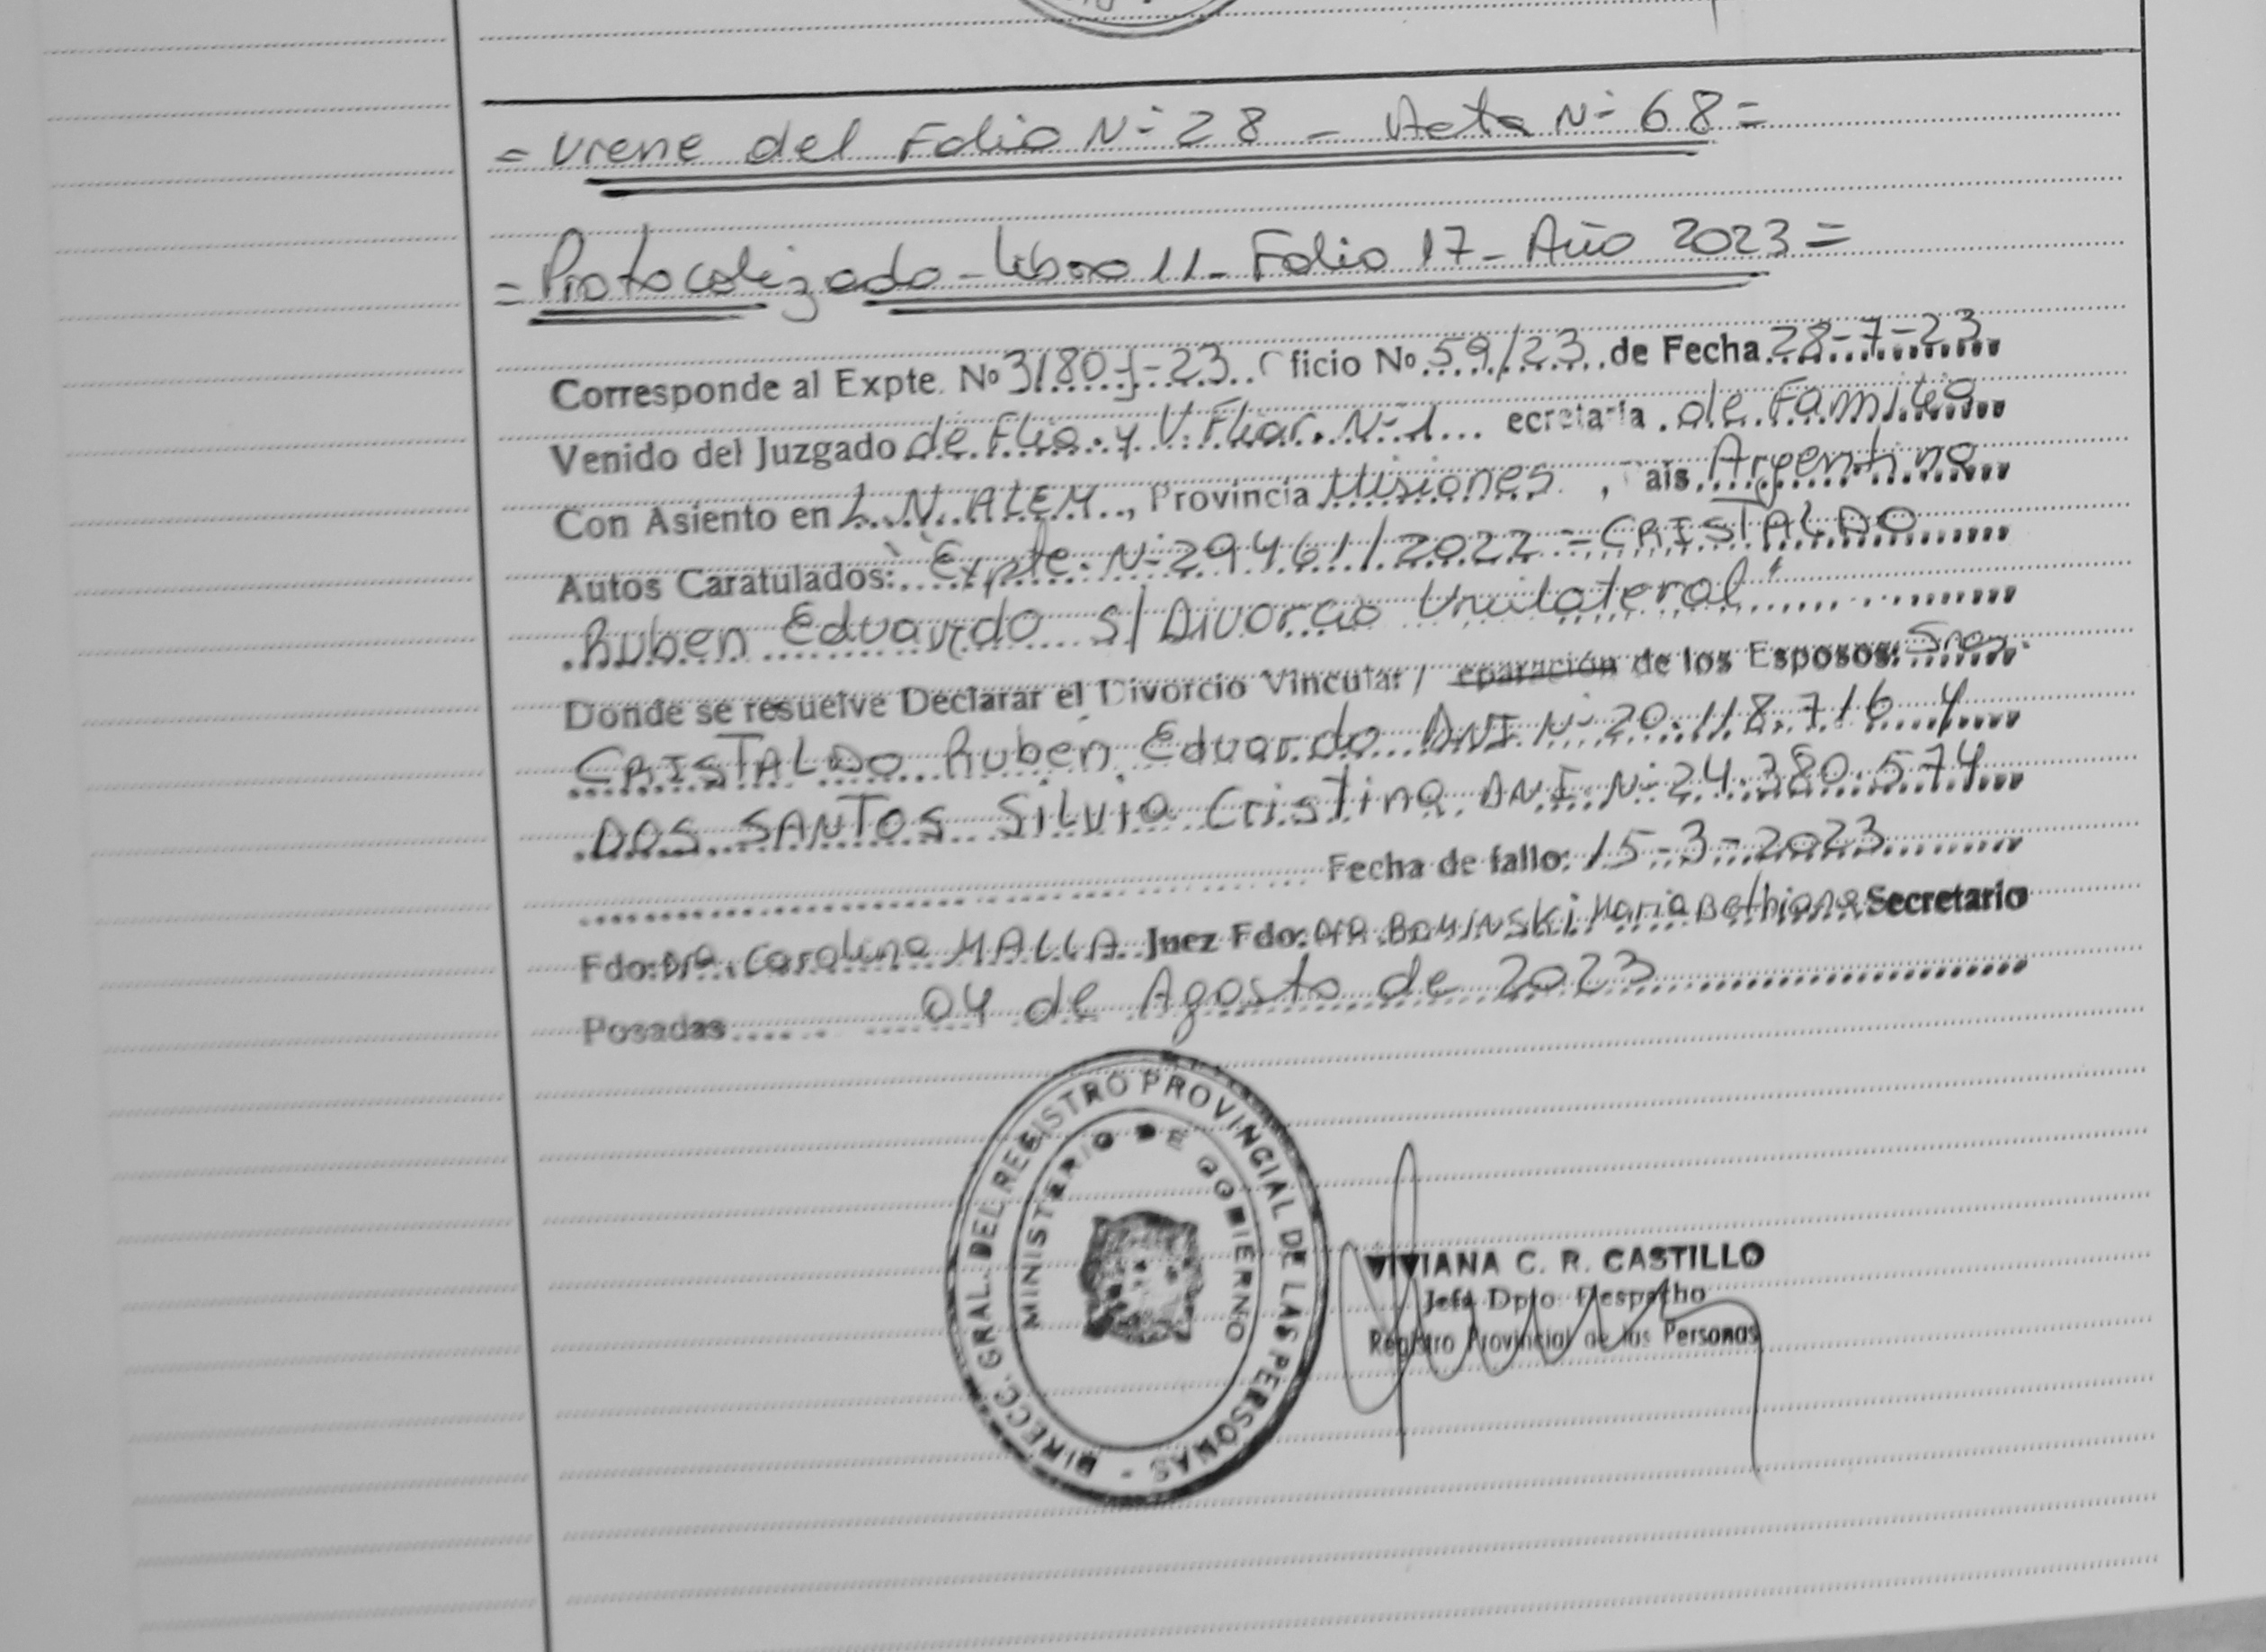 = viene del Folio Nº 28 - Acta Nº 68 =
= Protocolizado - Libro 11 - Folio 17 - Año 2023 =
Corresponde al Expte. Nº 3180-J-23. ficio Nº 59/23 de Fecha 28-7-23
Venido del Juzgado de Flia. y V. Fliar. Nº 1 ecretaria de Familia
Con Asiento en L. N. ALEM, Provincia Misiones, aís Argentina
Autos Caratulados: "Expte. Nº 29461/2022 - CRISTALDO
Ruben Eduardo s/ Divorcio Unilateral"
Donde se resuelve Declarar el Divorcio Vincular / eparación de los Esposos: Sres.
CRISTALDO Ruben Eduardo DNI Nº 20.118.716 y
DOS SANTOS Silvia Cristina DNI. Nº 24.380.574
Fecha de fallo: 15-3-2023
Fdo: Dra. Carolina MALLA Juez Fdo: Dra. BOMINSKI Maria Bethiana Secretario
Posadas 04 de Agosto de 2023
DIRECC. GRAL. DEL REGISTRO PROVINCIAL DE LAS PERSONAS -
MINISTERIO DE GOBIERNO
VIVIANA C. R. CASTILLO
Jefa Dpto. Despacho
Registro Provincial de las Personas